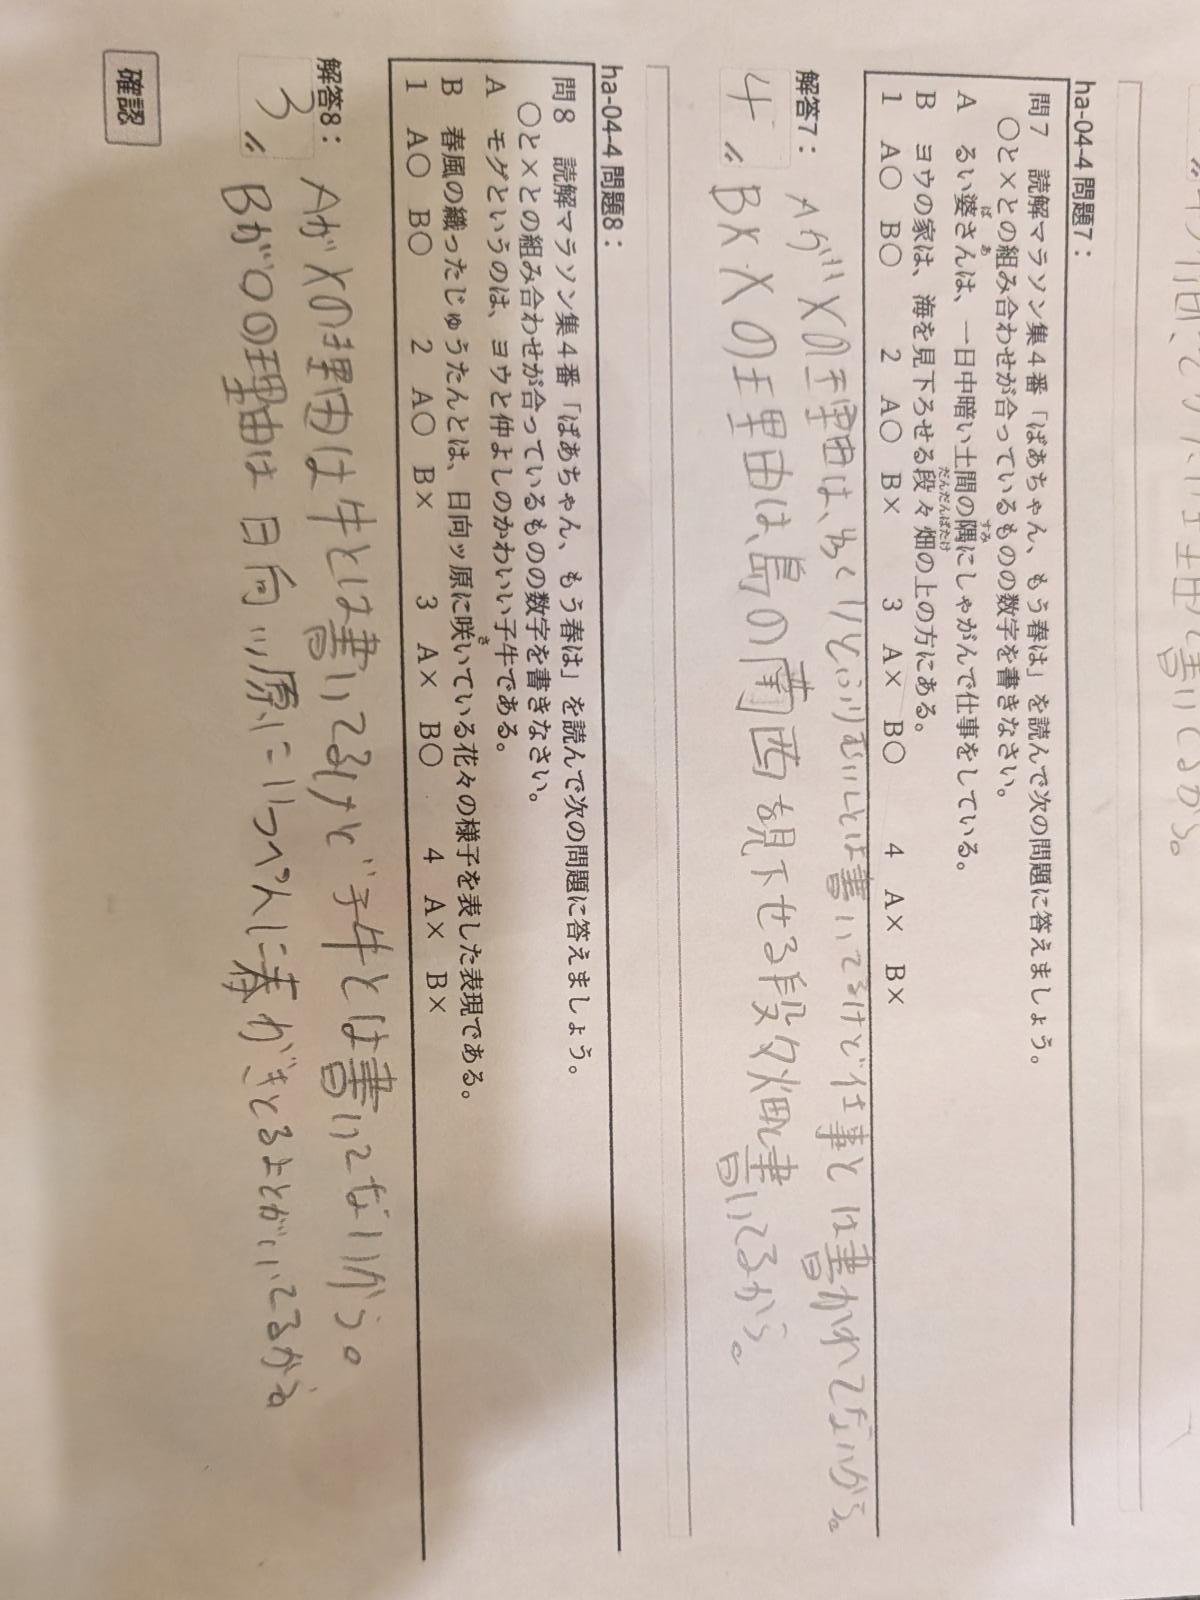 ha-04-4 問題7:
問7 読解マラソン集4番「ばあちゃん、もう春は」を読んで次の問題に答えましょう。
○と×との組み合わせが合っているものの数字を書きなさい。
A るい婆さんは、一日中暗い土間の隅にしゃがんで仕事をしている。
B ヨウの家は、海を見下ろせる段々畑の上の方にある。
1 A○ B○ 2 A○ B× 3 A× B○ 4 A× B×
解答7:
4〃
Aが×の理由は、とは書いてるけど仕事とは書かれてないから。
B××の理由は、島の南西を見下せる段々畑書いてるから。
ha-04-4 問題8:
問8 読解マラソン集4番「ばあちゃん、もう春は」を読んで次の問題に答えましょう。
○と×との組み合わせが合っているものの数字を書きなさい。
A モグというのは、ヨウと仲よしのかわいい子牛である。
B 春風の織ったじゅうたんとは、日向ッ原に咲いている花々の様子を表した表現である。
1 A○ B○ 2 A○ B× 3 A× B○ 4 A× B×
解答8:
3〃
Aが×の理由は牛とは書いてるけど子牛とは書いてないから。
Bが○の理由は日向ッ原にいっぺんに春が
確認